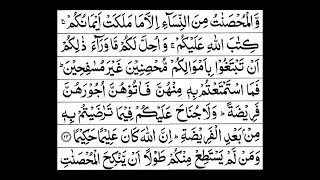 وَّالْمُحْصَنٰتُ مِنَ النِّسَآءِ اِلَّا مَا مَلَكَتْ اَيْمَانُكُمْ ۚ
كِتٰبَ اللّٰهِ عَلَيْكُمْ ۚ وَاُحِلَّ لَكُمْ مَّا وَرَآءَ ذٰلِكُمْ
اَنْ تَبْتَغُوْا بِاَمْوَالِكُمْ مُّحْصِنِيْنَ غَيْرَ مُسٰفِحِيْنَ ؕ
فَمَا اسْتَمْتَعْتُمْ بِهٖ مِنْهُنَّ فَاٰتُوْهُنَّ اُجُوْرَهُنَّ
فَرِيْضَةً ؕ وَلَا جُنَاحَ عَلَيْكُمْ فِيْمَا تَرٰضَيْتُمْ بِهٖ
مِنْۢ بَعْدِ الْفَرِيْضَةِ ؕ اِنَّ اللّٰهَ كَانَ عَلِيْمًا حَكِيْمًا ﴿۲۴﴾
وَمَنْ لَّمْ يَسْتَطِعْ مِنْكُمْ طَوْلًا اَنْ يَّنْكِحَ الْمُحْصَنٰتِ